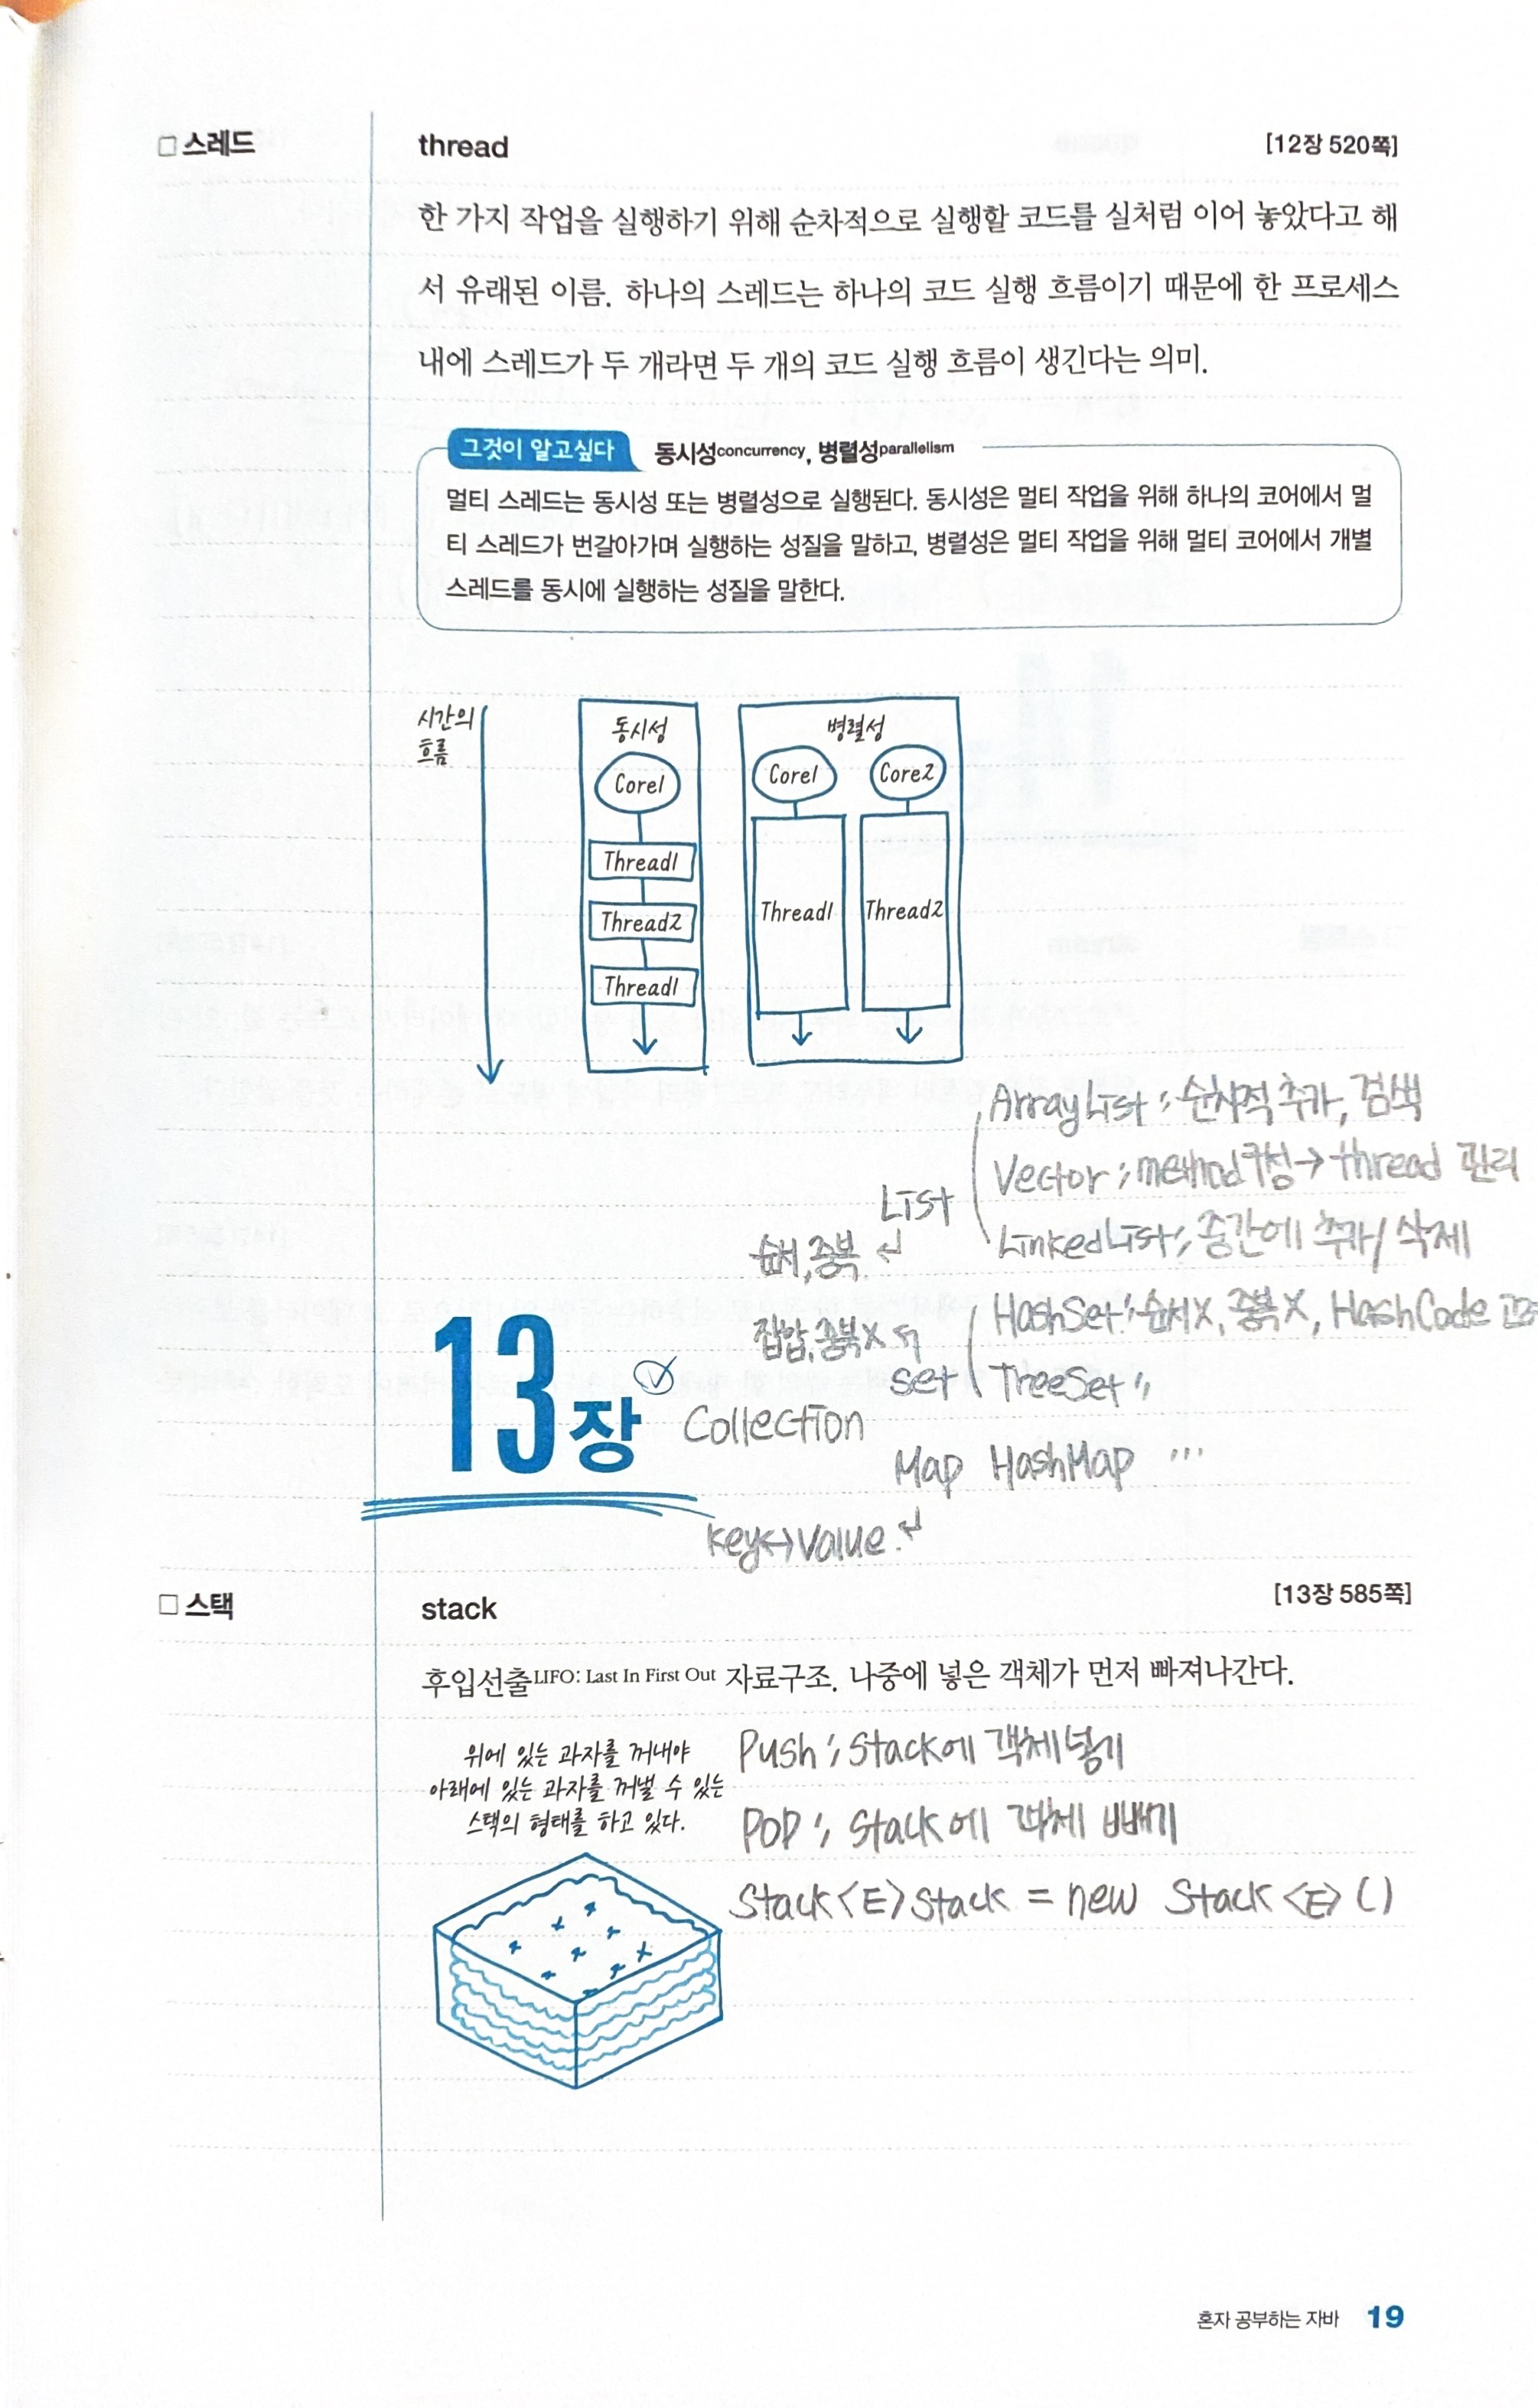 □ 스레드
thread
[12장 520쪽]
한 가지 작업을 실행하기 위해 순차적으로 실행할 코드를 실처럼 이어 놓았다고 해
서 유래된 이름. 하나의 스레드는 하나의 코드 실행 흐름이기 때문에 한 프로세스
내에 스레드가 두 개라면 두 개의 코드 실행 흐름이 생긴다는 의미.
그것이 알고싶다 동시성concurrency, 병렬성parallelism
멀티 스레드는 동시성 또는 병렬성으로 실행된다. 동시성은 멀티 작업을 위해 하나의 코어에서 멀
티 스레드가 번갈아가며 실행하는 성질을 말하고, 병렬성은 멀티 작업을 위해 멀티 코어에서 개별
스레드를 동시에 실행하는 성질을 말한다.
시간의
흐름
동시성
Core1
Thread1
Thread2
Thread1
병렬성
Core1
Core2
Thread1
Thread2
ArrayList : 순차적 추가, 검색
Vector : method구성 → thread 관리
LinkedList : 중간에 추가/삭제
List
순서, 중복 ↵
HashSet : 순서X, 중복X, HashCode
집합, 중복X
set
TreeSet :
13장
Collection
Map HashMap ...
key↔value ↵
□ 스택
stack
[13장 585쪽]
후입선출LIFO: Last In First Out 자료구조. 나중에 넣은 객체가 먼저 빠져나간다.
위에 있는 과자를 꺼내야
아래에 있는 과자를 꺼낼 수 있는
스택의 형태를 하고 있다.
Push : Stack에 객체 넣기
POP : Stack에 객체 빼기
Stack<E> stack = new Stack<E>()
혼자 공부하는 자바 19